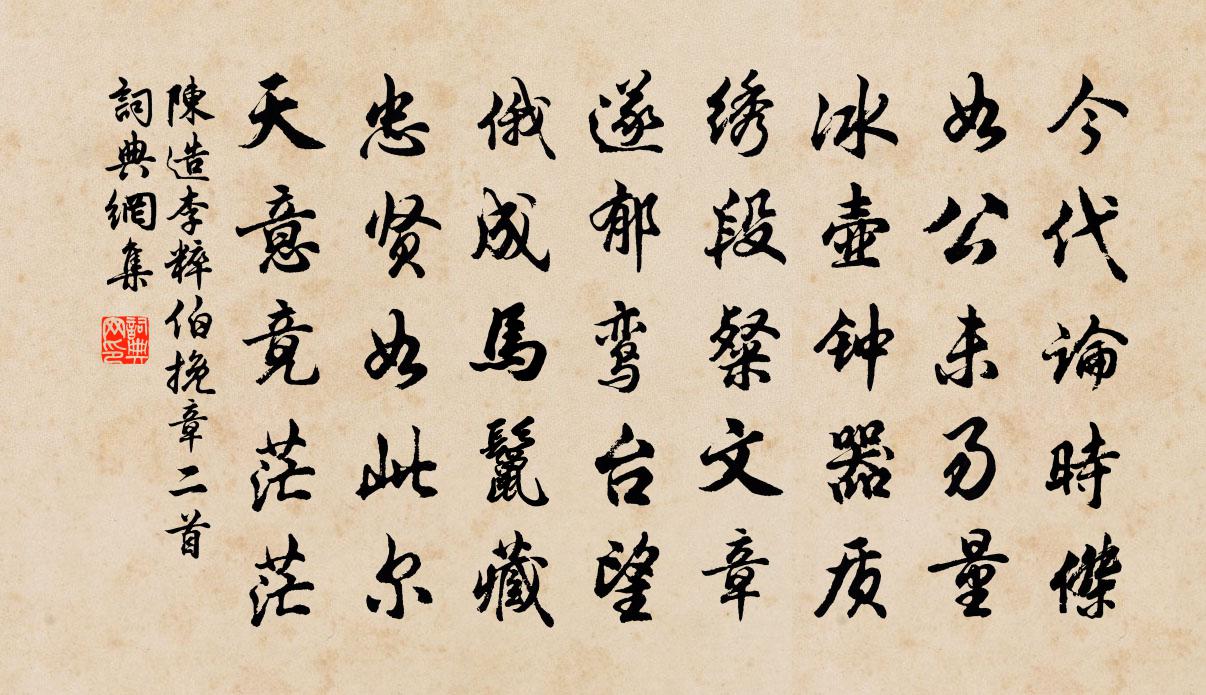 今代論時傑
如公未易量
冰壺钟器质
绣段粲文章
遂郁鸾台望
俄成馬鬣藏
忠贤如此尔
天意竟茫茫
陳造李粹伯挽章二首
詞典網集
詞典网印